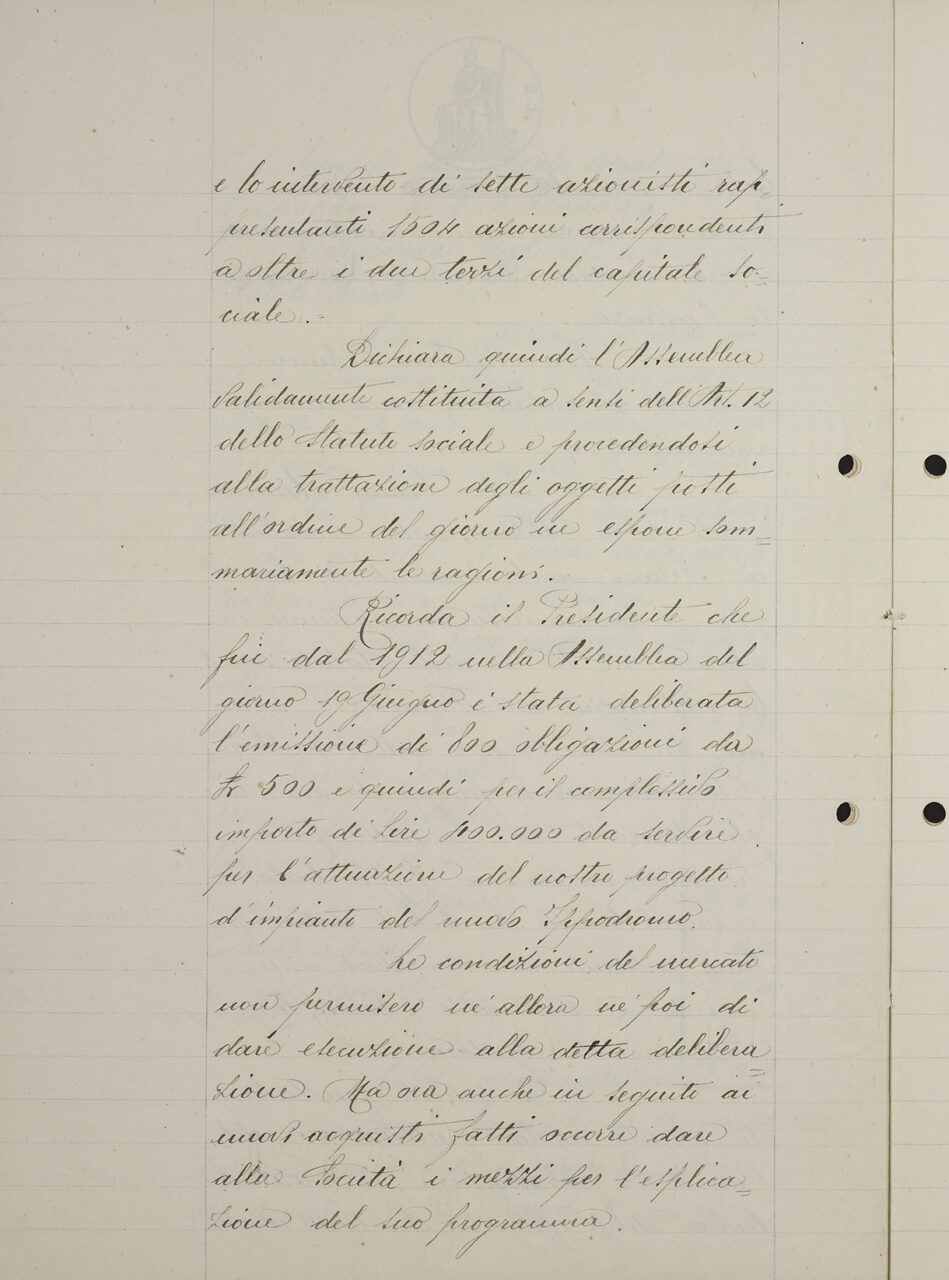 e lo intervento di sette azionisti rap=
presentanti 1504 azioni corrispondenti
a oltre i due terzi del capitale so=
ciale.=
Dichiara quindi l'Assemblea
validamente costituita a sensi dell'Art. 12
dello Statuto sociale e procedendosi
alla trattazione degli oggetti posti
all'ordine del giorno ne espone som=
mariamente le ragioni.
Ricorda il Presidente che
fin dal 1912 nella Assemblea del
giorno 19 Giugno è stata deliberata
l'emissione di 800 obbligazioni da
£ 500 e quindi per il complessivo
importo di Lire 400.000 da servire
per l'attuazione del nostro progetto
d'impianto del nuovo Ippodromo.
Le condizioni del mercato
non permisero nè allora nè poi di
dare esecuzione alla detta delibera=
zione. Ma ora anche in seguito ai
nuovi acquisti fatti occorre dare
alla Società i mezzi per l'esplica=
zione del suo programma.